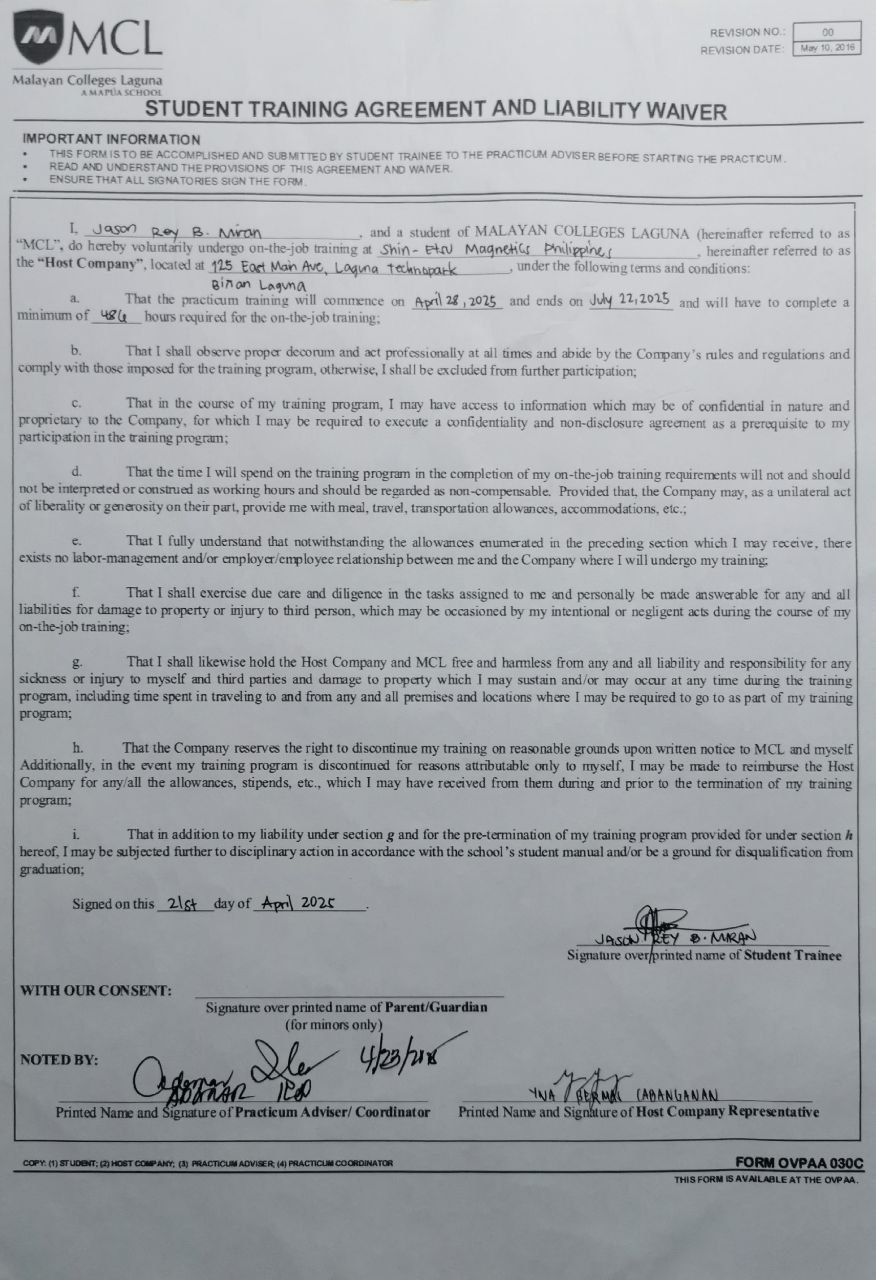 MCL
Malayan Colleges Laguna
A MAPÚA SCHOOL
REVISION NO.: 00
REVISION DATE: May 10, 2016
STUDENT TRAINING AGREEMENT AND LIABILITY WAIVER
IMPORTANT INFORMATION
• THIS FORM IS TO BE ACCOMPLISHED AND SUBMITTED BY STUDENT TRAINEE TO THE PRACTICUM ADVISER BEFORE STARTING THE PRACTICUM.
• READ AND UNDERSTAND THE PROVISIONS OF THIS AGREEMENT AND WAIVER.
• ENSURE THAT ALL SIGNATORIES SIGN THE FORM.
I, Jason Rey B. Miran, and a student of MALAYAN COLLEGES LAGUNA (hereinafter referred to as
"MCL", do hereby voluntarily undergo on-the-job training at Shin-Etsu Magnetics Philippines, hereinafter referred to as
the "Host Company", located at 125 East Main Ave, Laguna Technopark, under the following terms and conditions:
Biñan Laguna
a. That the practicum training will commence on April 28, 2025 and ends on July 22, 2025 and will have to complete a
minimum of 486 hours required for the on-the-job training;
b. That I shall observe proper decorum and act professionally at all times and abide by the Company's rules and regulations and
comply with those imposed for the training program, otherwise, I shall be excluded from further participation;
c. That in the course of my training program, I may have access to information which may be of confidential in nature and
proprietary to the Company, for which I may be required to execute a confidentiality and non-disclosure agreement as a prerequisite to my
participation in the training program;
d. That the time I will spend on the training program in the completion of my on-the-job training requirements will not and should
not be interpreted or construed as working hours and should be regarded as non-compensable. Provided that, the Company may, as a unilateral act
of liberality or generosity on their part, provide me with meal, travel, transportation allowances, accommodations, etc.;
e. That I fully understand that notwithstanding the allowances enumerated in the preceding section which I may receive, there
exists no labor-management and/or employer/employee relationship between me and the Company where I will undergo my training;
f. That I shall exercise due care and diligence in the tasks assigned to me and personally be made answerable for any and all
liabilities for damage to property or injury to third person, which may be occasioned by my intentional or negligent acts during the course of my
on-the-job training;
g. That I shall likewise hold the Host Company and MCL free and harmless from any and all liability and responsibility for any
sickness or injury to myself and third parties and damage to property which I may sustain and/or may occur at any time during the training
program, including time spent in traveling to and from any and all premises and locations where I may be required to go to as part of my training
program;
h. That the Company reserves the right to discontinue my training on reasonable grounds upon written notice to MCL and myself
Additionally, in the event my training program is discontinued for reasons attributable only to myself, I may be made to reimburse the Host
Company for any/all the allowances, stipends, etc., which I may have received from them during and prior to the termination of my training
program;
i. That in addition to my liability under section g and for the pre-termination of my training program provided for under section h
hereof, I may be subjected further to disciplinary action in accordance with the school's student manual and/or be a ground for disqualification from
graduation;
Signed on this 21st day of April 2025.
JASON REY B. MIRAN
Signature over printed name of Student Trainee
WITH OUR CONSENT:
Signature over printed name of Parent/Guardian
(for minors only)
NOTED BY:
YNA BERMAS CABANGANAN
Printed Name and Signature of Practicum Adviser/ Coordinator
Printed Name and Signature of Host Company Representative
COPY: (1) STUDENT; (2) HOST COMPANY; (3) PRACTICUM ADVISER; (4) PRACTICUM COORDINATOR
FORM OVPAA 030C
THIS FORM IS AVAILABLE AT THE OVPAA.